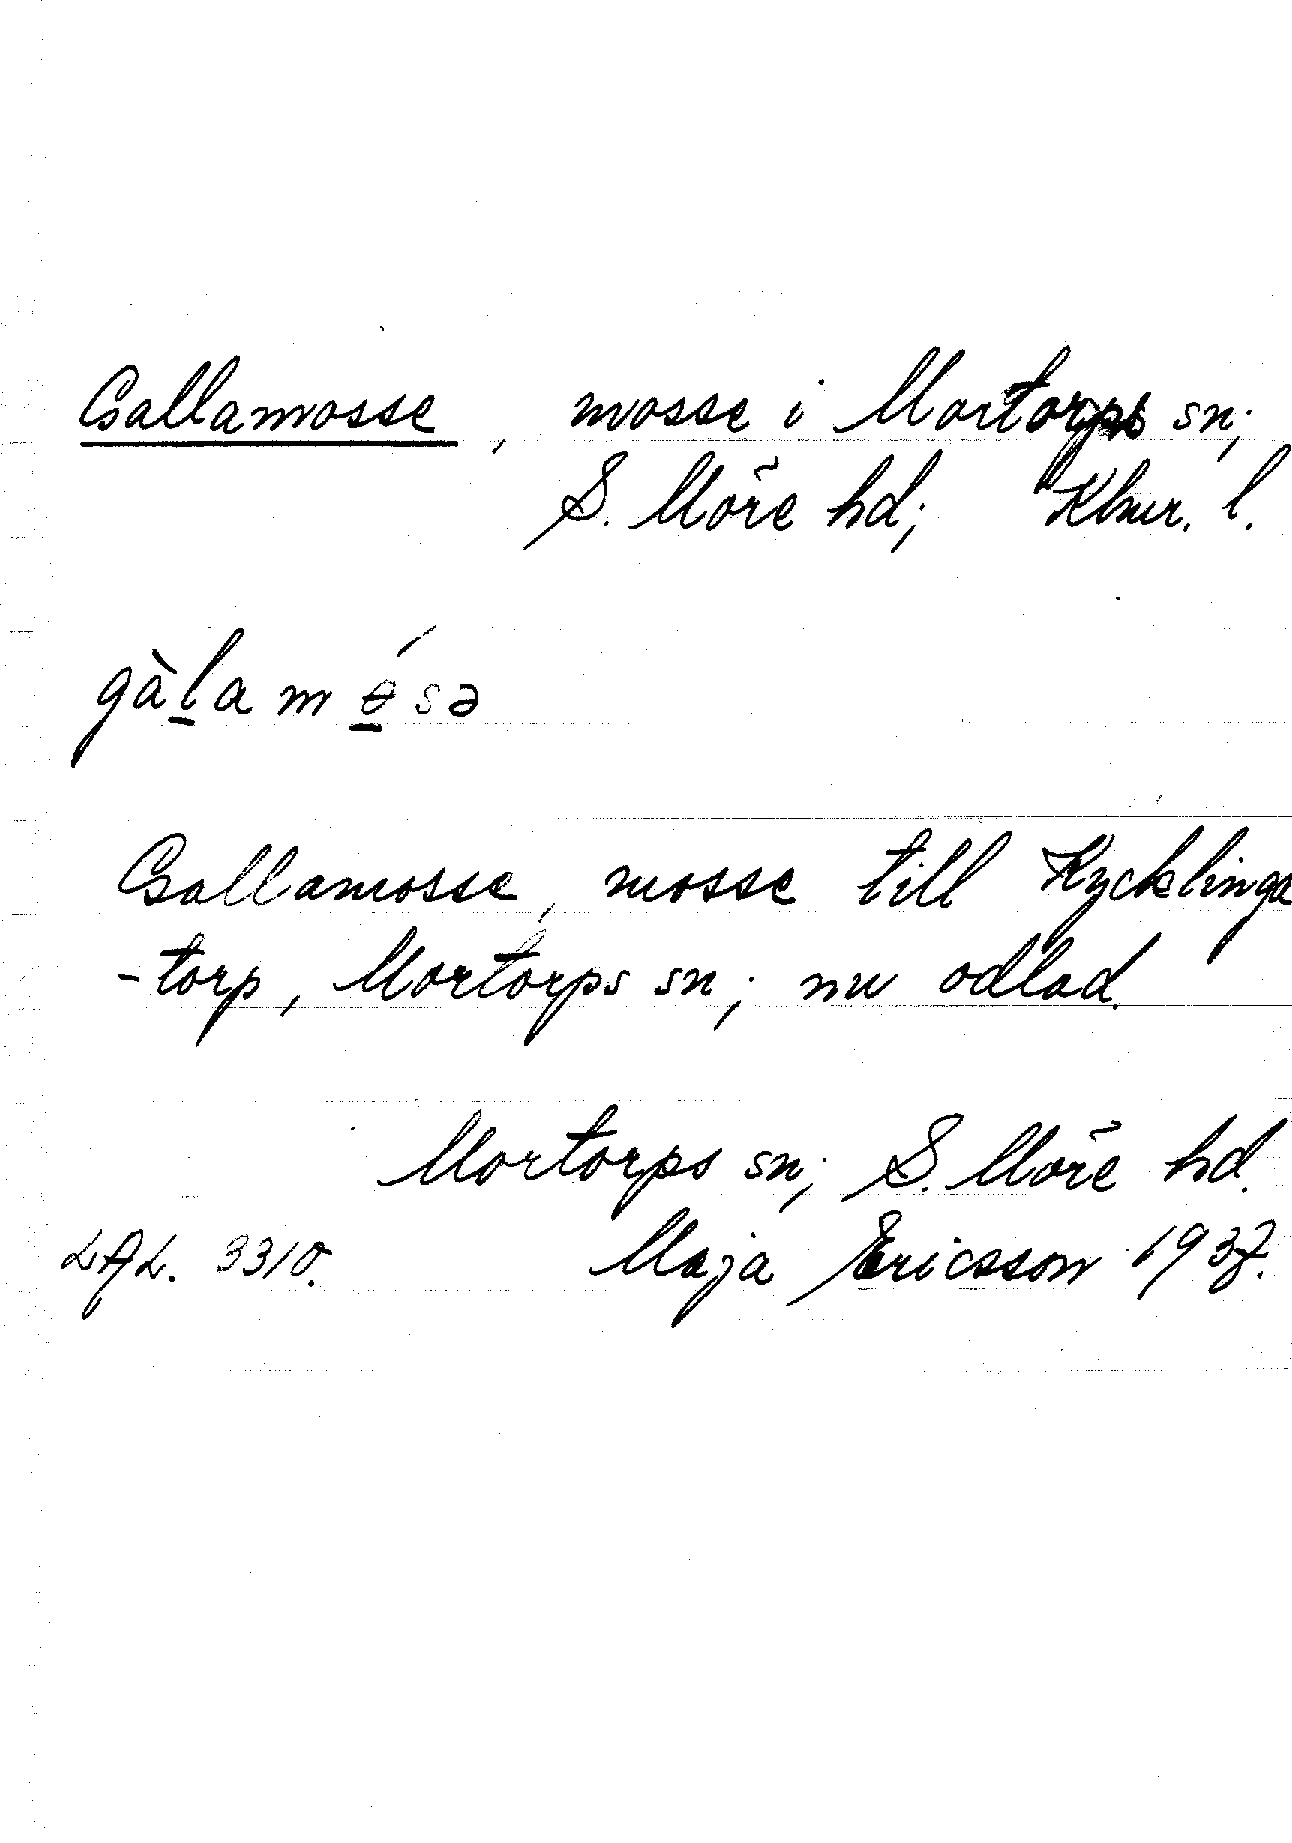 Gallamosse, mosse i Mortorps sn;
S. Möre hd; Klmr. l.
gàl̲a m ɵ̲́sə
Gallamosse, mosse till Kycklinga
-torp, Mortorps sn; nu odlad.
Mortorps sn; S. Möre hd.
LAL. 3310. Maja Ericsson 1937.